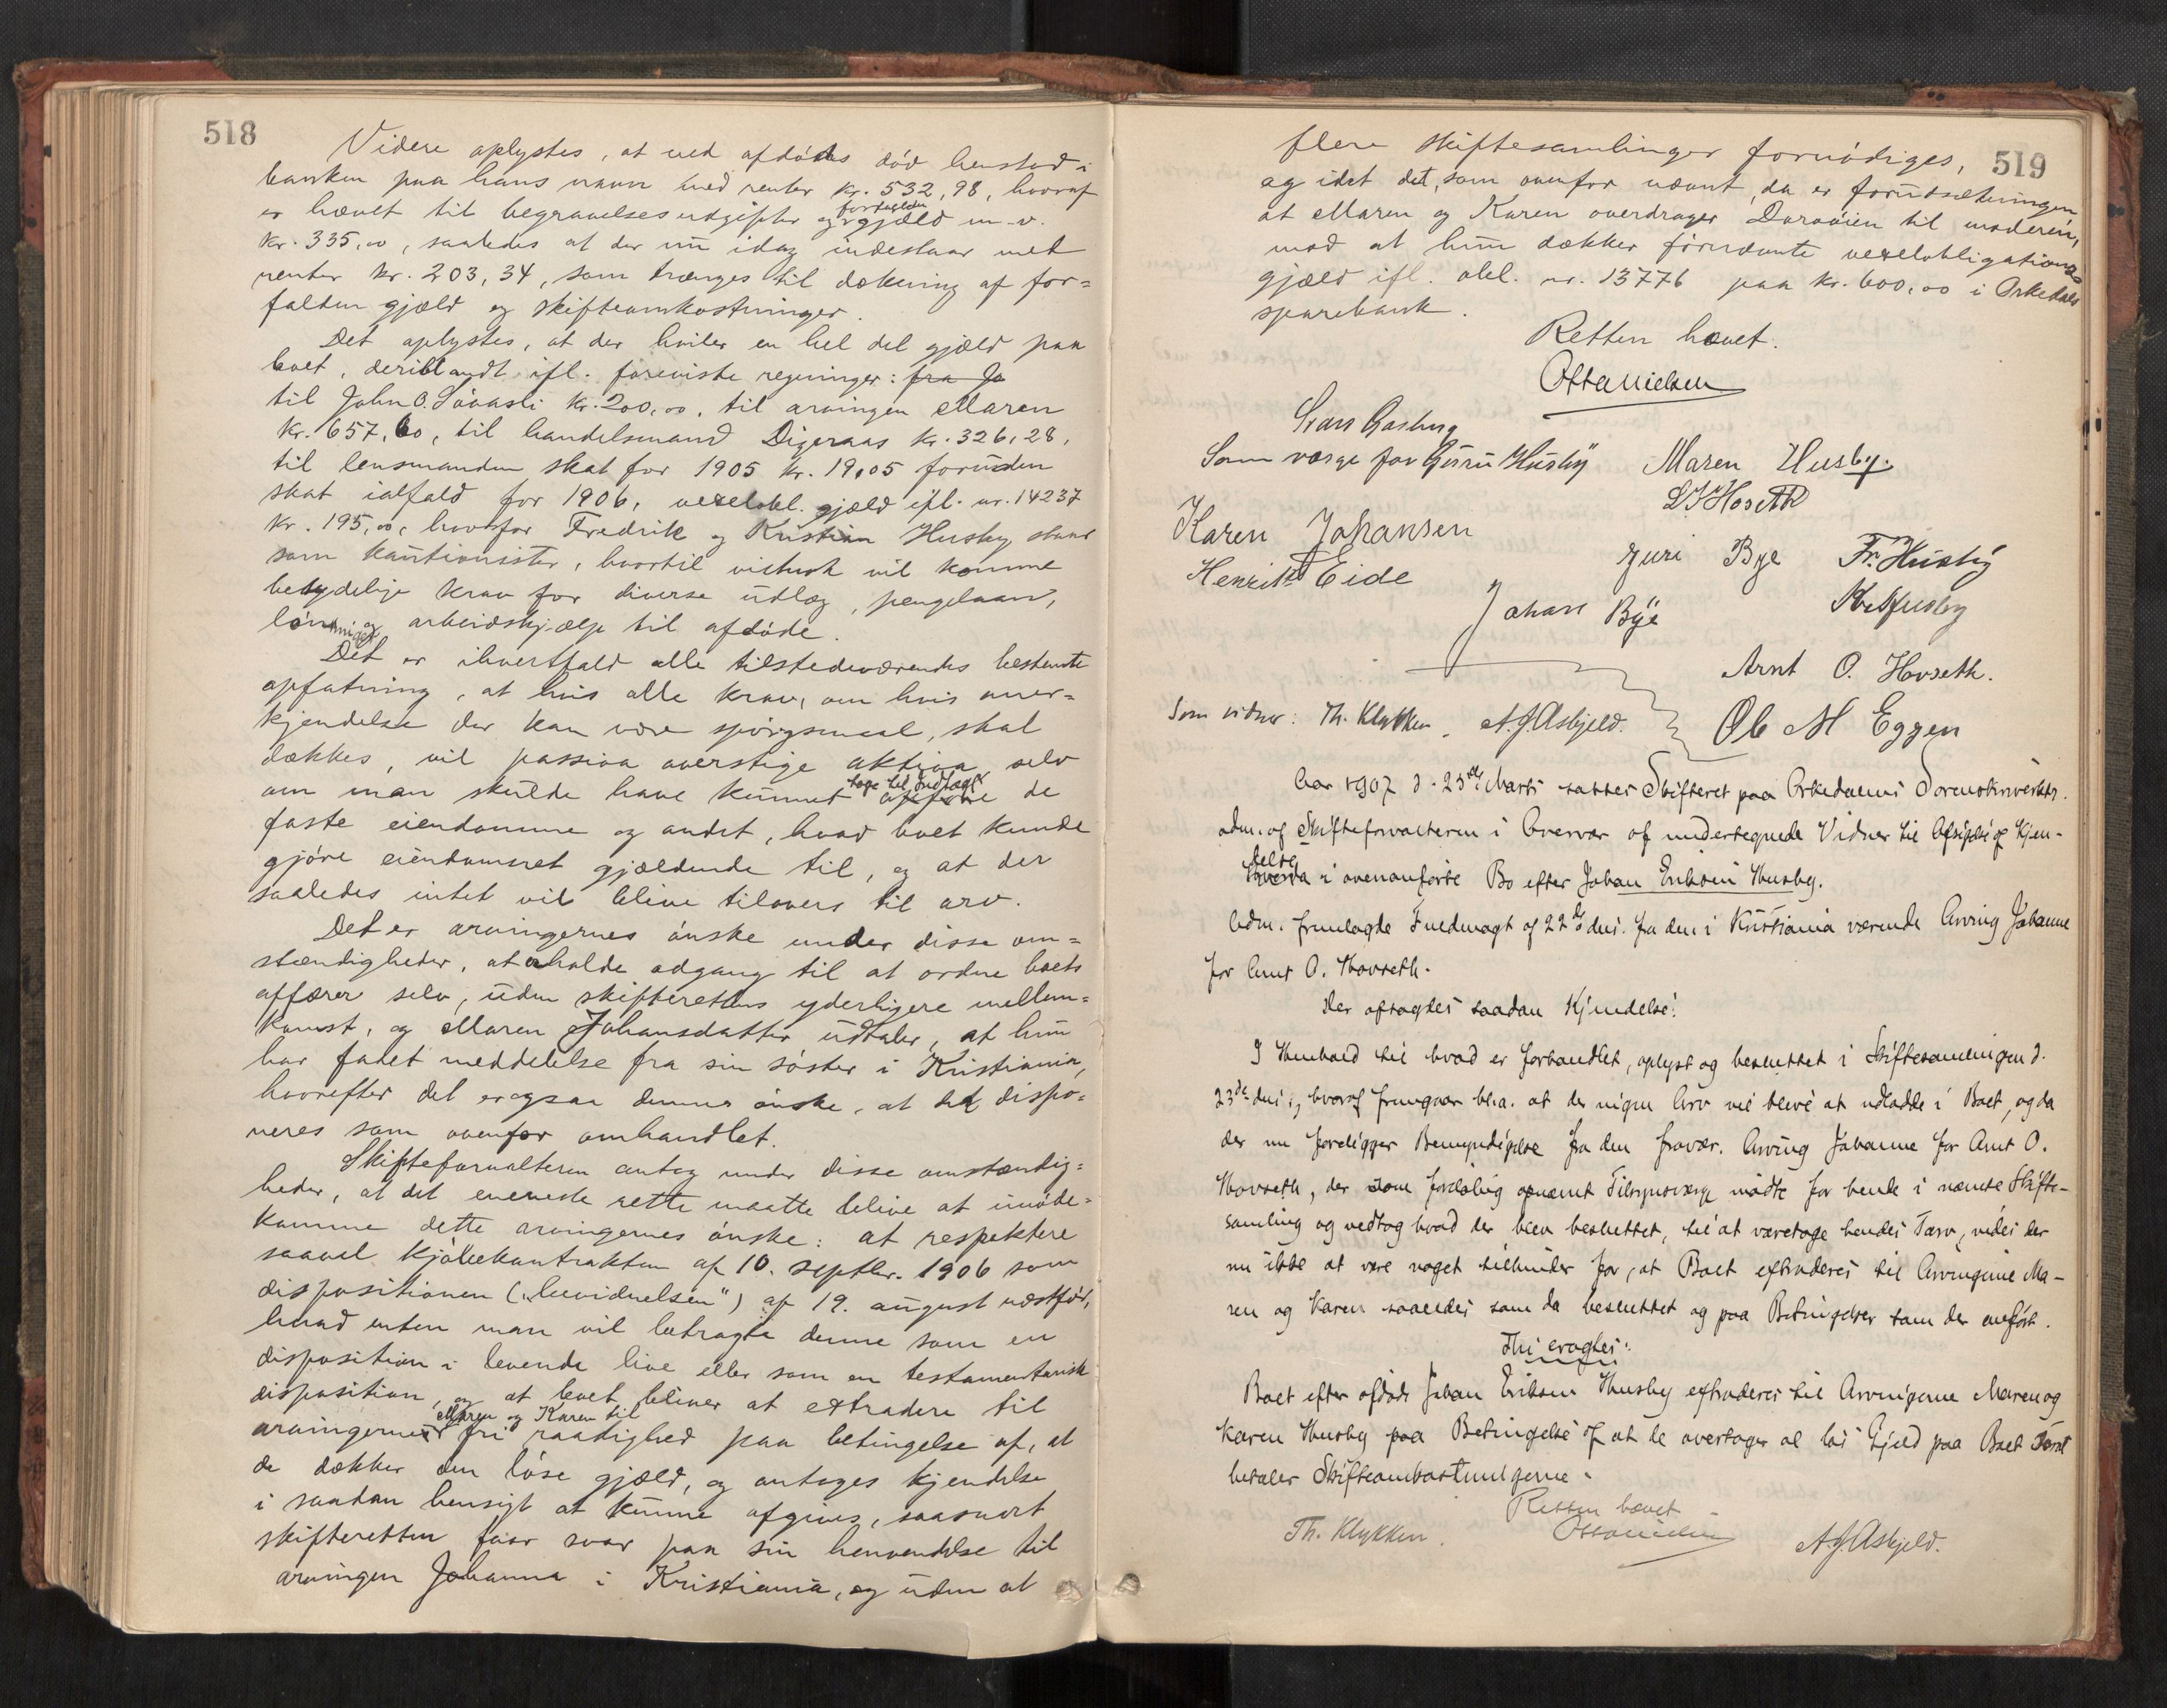 518
Videre oplystes, at ved afdødes død henstod i
banken paa hans navn med renter kr. 532,98, hvoraf
er hævet til begravelsesudgifter og forfalden gjæld m.v.
kr. 335,00, saaledes at der nu idag indestaar med
renter kr. 203,34, som trænges til dækning af for=
falden gjæld og skifteomkostninger.
Det oplystes, at der hviler en hel del gjæld paa
boet, deriblandt ifl. foreviste regninger: fra Jo
til John O. kr. 200,00, til arvingen Maren
kr. 657,60, til handelsmand Digeraas kr. 326,28,
til lensmanden skat for 1905 kr. 19,05 foruden
skat ialfald for 1906, vexelobl. gjæld ifl. nr. 14237
kr. 195,00, hvorfor Fredrik og Kristian Husby staar
som kautionister, hvortil vistnok vil komme
betydelige krav for diverse udlæg, pengelaan,
lønninger og arbeidshjælp til afdøde.
Det er ihvertfald alle tilstedeværendes bestemte
opfatning, at hvis alle krav, om hvis aner=
kjendelse der kan være spørgsmaal, skal
dækkes, vil passiva overstige aktiva, selv
om man skulde have kunnet tage til Indtægt opføre de
faste eiendomme og andet, hvad boet kunde
gjøre eiendomsret gjældende til, og at der
saaledes intet vil blive tilovers til arv.
Det er arvingernes ønske under disse om=
stændigheder, at erholde adgang til at ordne boets
affærer selv, uden skifterettens yderligere mellem=
komst, og Maren Johansdatter udtaler, at hun
har faaet meddelelse fra sin søster i Kristiania,
hvorefter det er ogsaa dennes ønske, at det dispo=
neres som ovenfor omhandlet.
Skifteforvalteren antog under disse omstændig=
heder, at det eneneste rette maatte blive at imøde=
komme dette arvingernes ønske: at respektere
saavel kjøbekontrakten af 10. septbr. 1906 som
dispositionen ("bevidnelsen") af 19. august næstfør,
hvad enten man vil betragte denne som en
disposition i levende live eller som en testamentarisk
disposition, og at boet bliver at extradere til
arvingerne Maren og Karen til fri raadighed paa betingelse af, at
de dækker den løse gjæld, og antoges kjendelse
i saadan hensigt at kunne afgives, saasnart
skifteretten faar svar paa sin henvendelse til
arvingen Johanna i Kristiania, og uden at
519
flere skiftesamlinger fornødiges,
og idet det, som ovenfor nævnt, da er forudsætningen
at Maren og Karen overdrager Darøien til moderen,
mod at hun dækker førnævnte vexelobligations
gjæld ifl. obl. nr. 13776 paa kr. 600,00 i Orkedals
sparebank.
Retten hævet.
Otto Nielsen
Som værge for Guru Husby Maren Husby.
Karen Johansen
Henrik Eide guri Bye Fr. Husby
Johan Bye
Arnt O. Hovseth.
Som vidner: Th. Klykken. A. J. Asbjeld. Ole M Eggen
Aar 1907 d. 25de Marts sattes Skifteret paa Orkedalens Sorenskriverkto.
adm. af Skifteforvalteren i Overvær af undertegnede Vidner til Afsigelse af Kjen-
delse i ovenanførte Bo efter Johan Eriksen Husby.
Adm. fremlagde Fuldmagt af 22de ds. fra den i Kristiania værende Arving Johanne
for Arnt O. Hovseth.
Der afsagdes saadan Kjendelse:
I Henhold til hvad er forhandlet, oplyst og besluttet i Skiftesamlingen d.
23de ds., hvoraf fremgaar bl.a. at der ingen Arv vil blive at udlodde i Boet, og da
der nu foreligger Bemyndigelse fra den fravær. Arving Johanne for Arnt O.
Hovseth, der som foreløbig opnævnt Tilsynsværge mødte for hende i nævnte Skifte-
samling og vedtog hvad der blev besluttet, til at varetage hendes Tarv, vides der
nu ikke at være noget tilhinder for, at Boet extraderes til Arvingerne Ma-
ren og Karen saaledes som da besluttet og paa Betingelser som der anført.
Thi eragtes:
Boet efter afdøde Johan Eriksen Husby extraderes til Arvingerne Maren og
Karen Husby paa Betingelse af at de overtager al løs Gjæld paa Boet samt
betaler Skifteomkostningerne.
Retten hævet
Th. Klykken. Otto Nielsen A. J. Asbjeld.